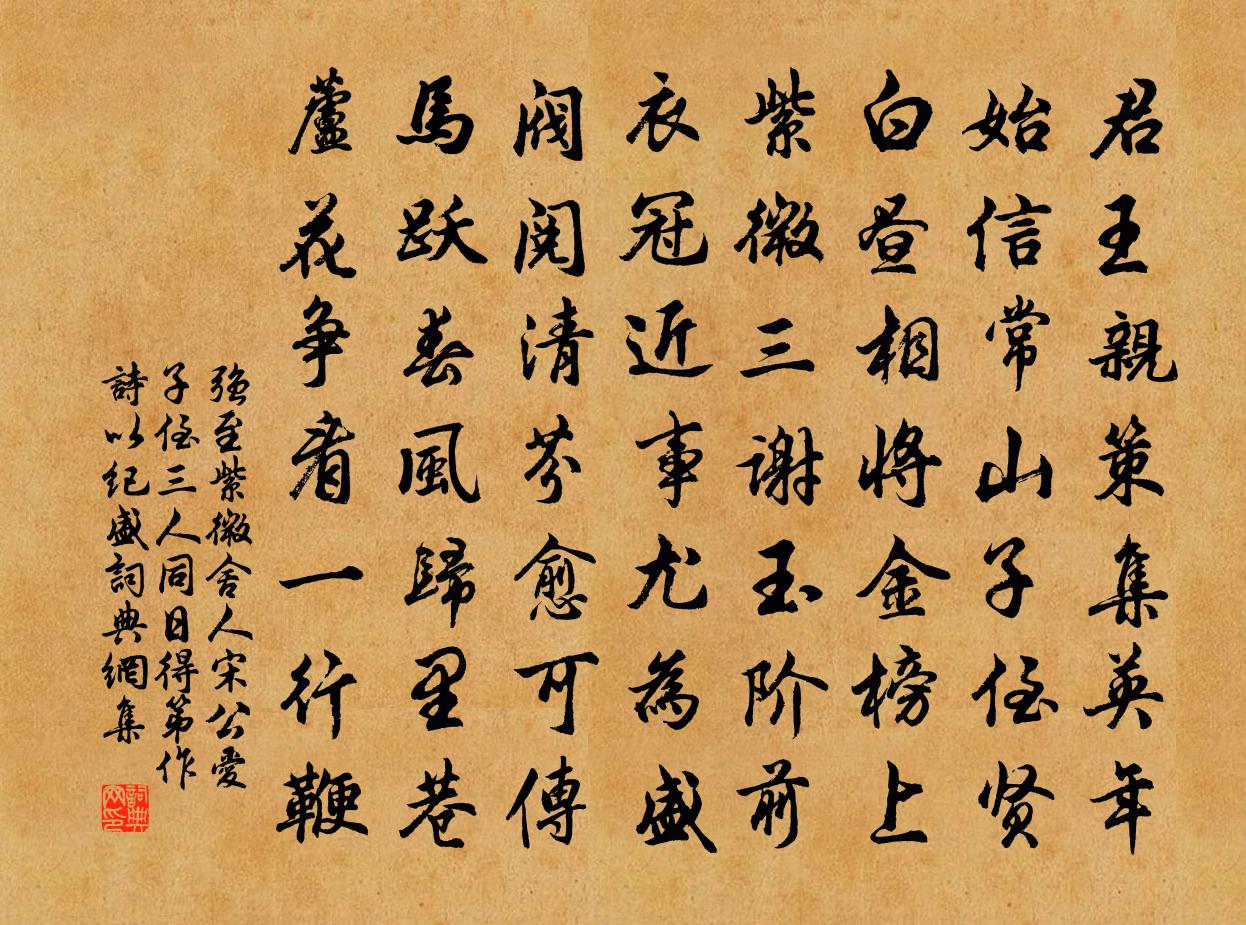 君王親策集英年
始信常山子侄贤
白昼相將金榜上
紫微三謝玉阶前
衣冠近事尤為盛
阀阅清芬愈可傳
馬跃春風歸里巷
蘆花争看一行鞭
强至紫微舍人宋公愛
子侄三人同日得第作
詩以纪盛詞典網集
詞典
网印